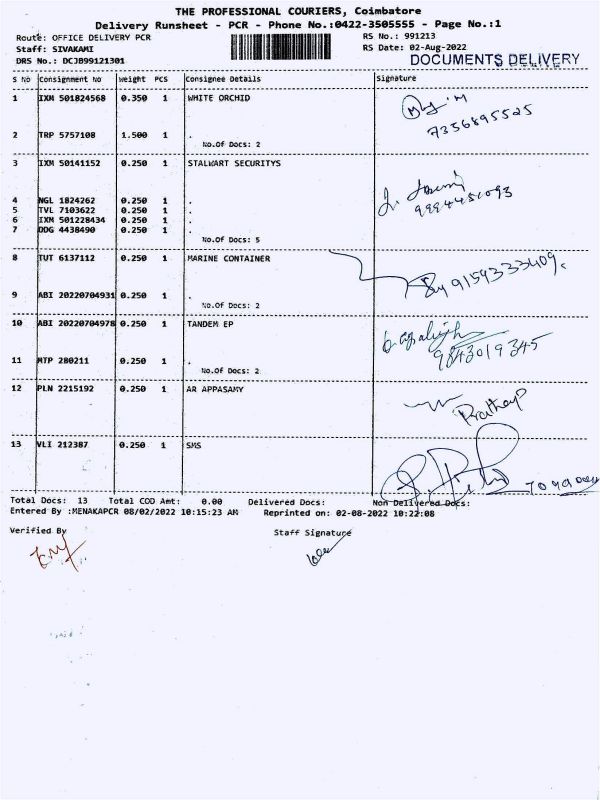 THE PROFESSIONAL COURIERS, Coimbatore
Delivery Runsheet - PCR - Phone No.:0422-3505555 - Page No.:1
Route: OFFICE DELIVERY PCR RS No.: 991213
Staff: SIVAKAMI RS Date: 02-Aug-2022
DRS No.: DCJB99121301 DOCUMENTS DELIVERY
S No Consignment No Weight PCS Consignee Details Signature
1 IXM 501824568 0.350 1 WHITE ORCHID
7356895525
2 TRP 5757108 1.500 1 .
No.Of Docs: 2
3 IXM 50141152 0.250 1 STALWART SECURITYS
4 NGL 1824262 0.250 1 .
9994451093
5 TVL 7103622 0.250 1 .
6 IXM 501228434 0.250 1 .
7 DDG 4438490 0.250 1 .
No.Of Docs: 5
8 TUT 6137112 0.250 1 MARINE CONTAINER
9159333409.
9 ABI 20220704931 0.250 1 .
No.Of Docs: 2
10 ABI 20220704978 0.250 1 TANDEM EP
9843019345
11 MTP 280211 0.250 1 .
No.Of Docs: 2
12 PLN 2215192 0.250 1 AR APPASAMY
Prathap
13 VLI 212387 0.250 1 SMS
Total Docs: 13 Total COD Amt: 0.00 Delivered Docs: Non Delivered Docs:
Entered By :MENAKAPCR 08/02/2022 10:15:23 AM Reprinted on: 02-08-2022 10:22:08
Verified By Staff Signature